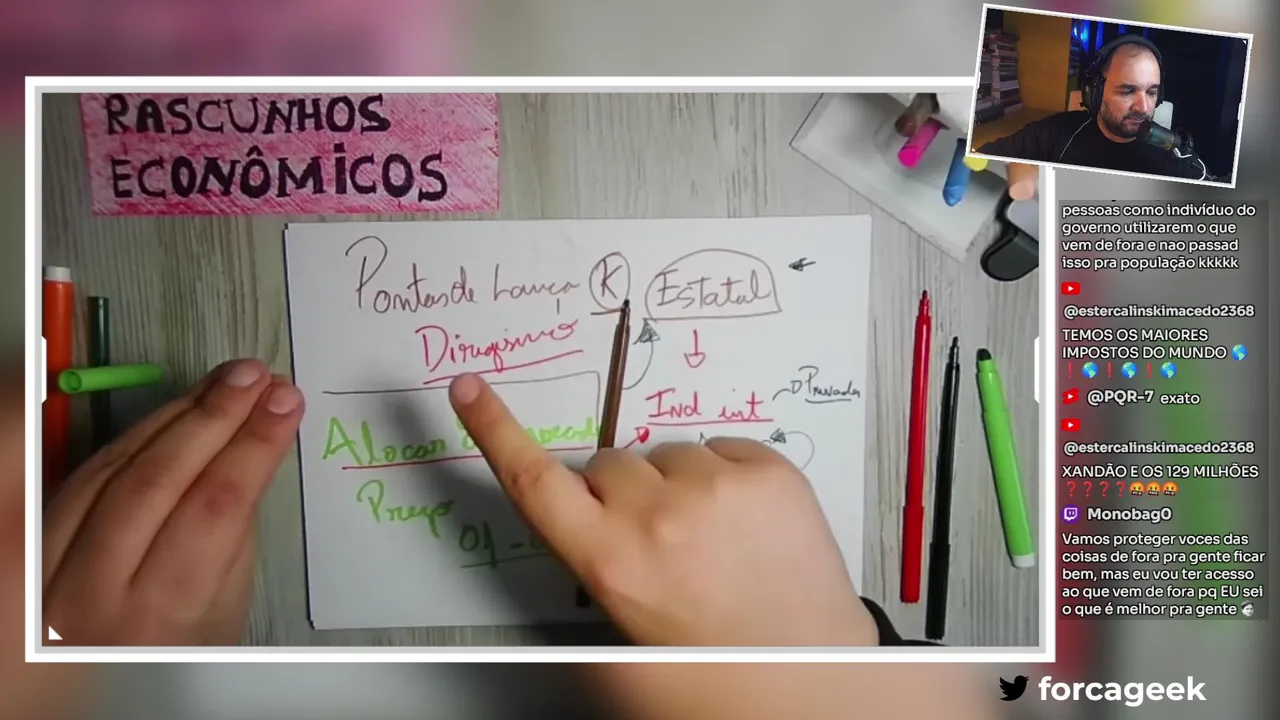 RASCUNHOS
ECONÔMICOS
Pontas de Lança K Estatal
Dirigismo
Ind int Privada
Alocar
Preço
pessoas como indivíduo do
governo utilizarem o que
vem de fora e nao passad
isso pra população kkkkk
@estercalinskimacedo2368
TEMOS OS MAIORES
IMPOSTOS DO MUNDO 🌎
❗🌎❗🌎❗🌎
@PQR-7 exato
@estercalinskimacedo2368
XANDÃO E OS 129 MILHÕES
❓❓❓❓🤬🤬🤬
Monobag0
Vamos proteger voces das
coisas de fora pra gente ficar
bem, mas eu vou ter acesso
ao que vem de fora pq EU sei
o que é melhor pra gente
forcageek